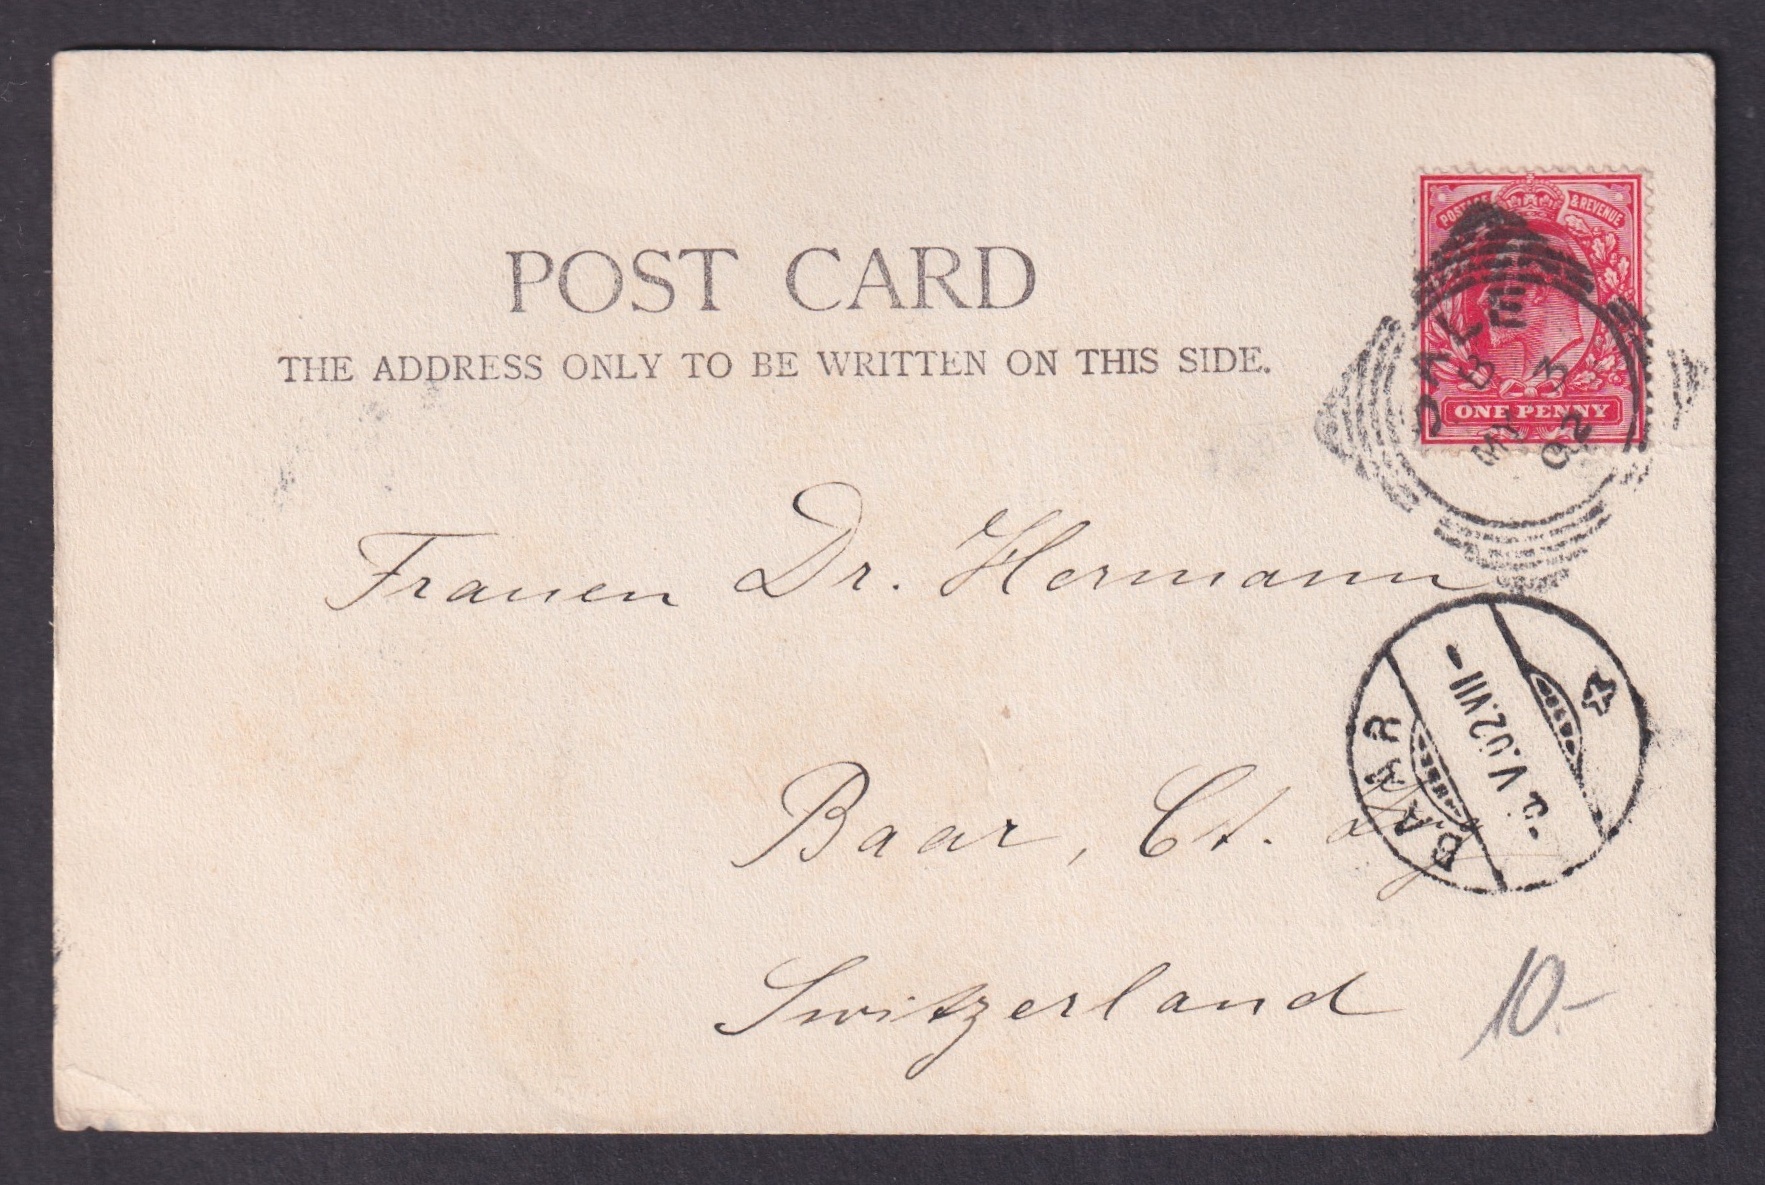 POST CARD
THE ADDRESS ONLY TO BE WRITTEN ON THIS SIDE.
POSTAGE & REVENUE
ONE PENNY
SALE
B 3
MY 02
Frauen Dr. Hermann
Baar, Ct. Zug
Switzerland
BAAR
V.02.VII-
10.-